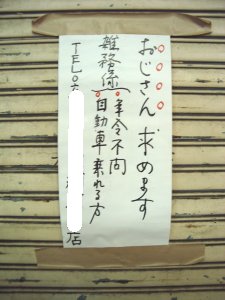 おじさん求めます
雑務係
○年令不問
○自動車乗れる方
TEL0
店